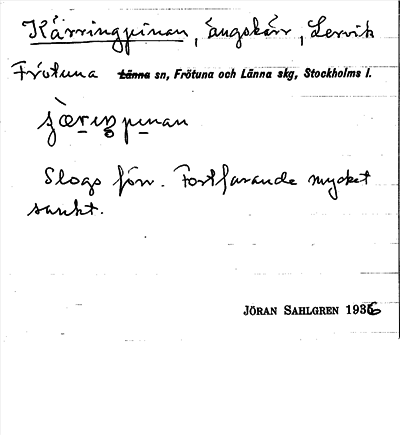 Kärringpinan, ängskärr, Lervik
Frötuna Länna sn, Frötuna och Länna skg, Stockholms l.
pinan
Slogs förr. Fortfarande mycket
sankt.
JÖRAN SAHLGREN 1936